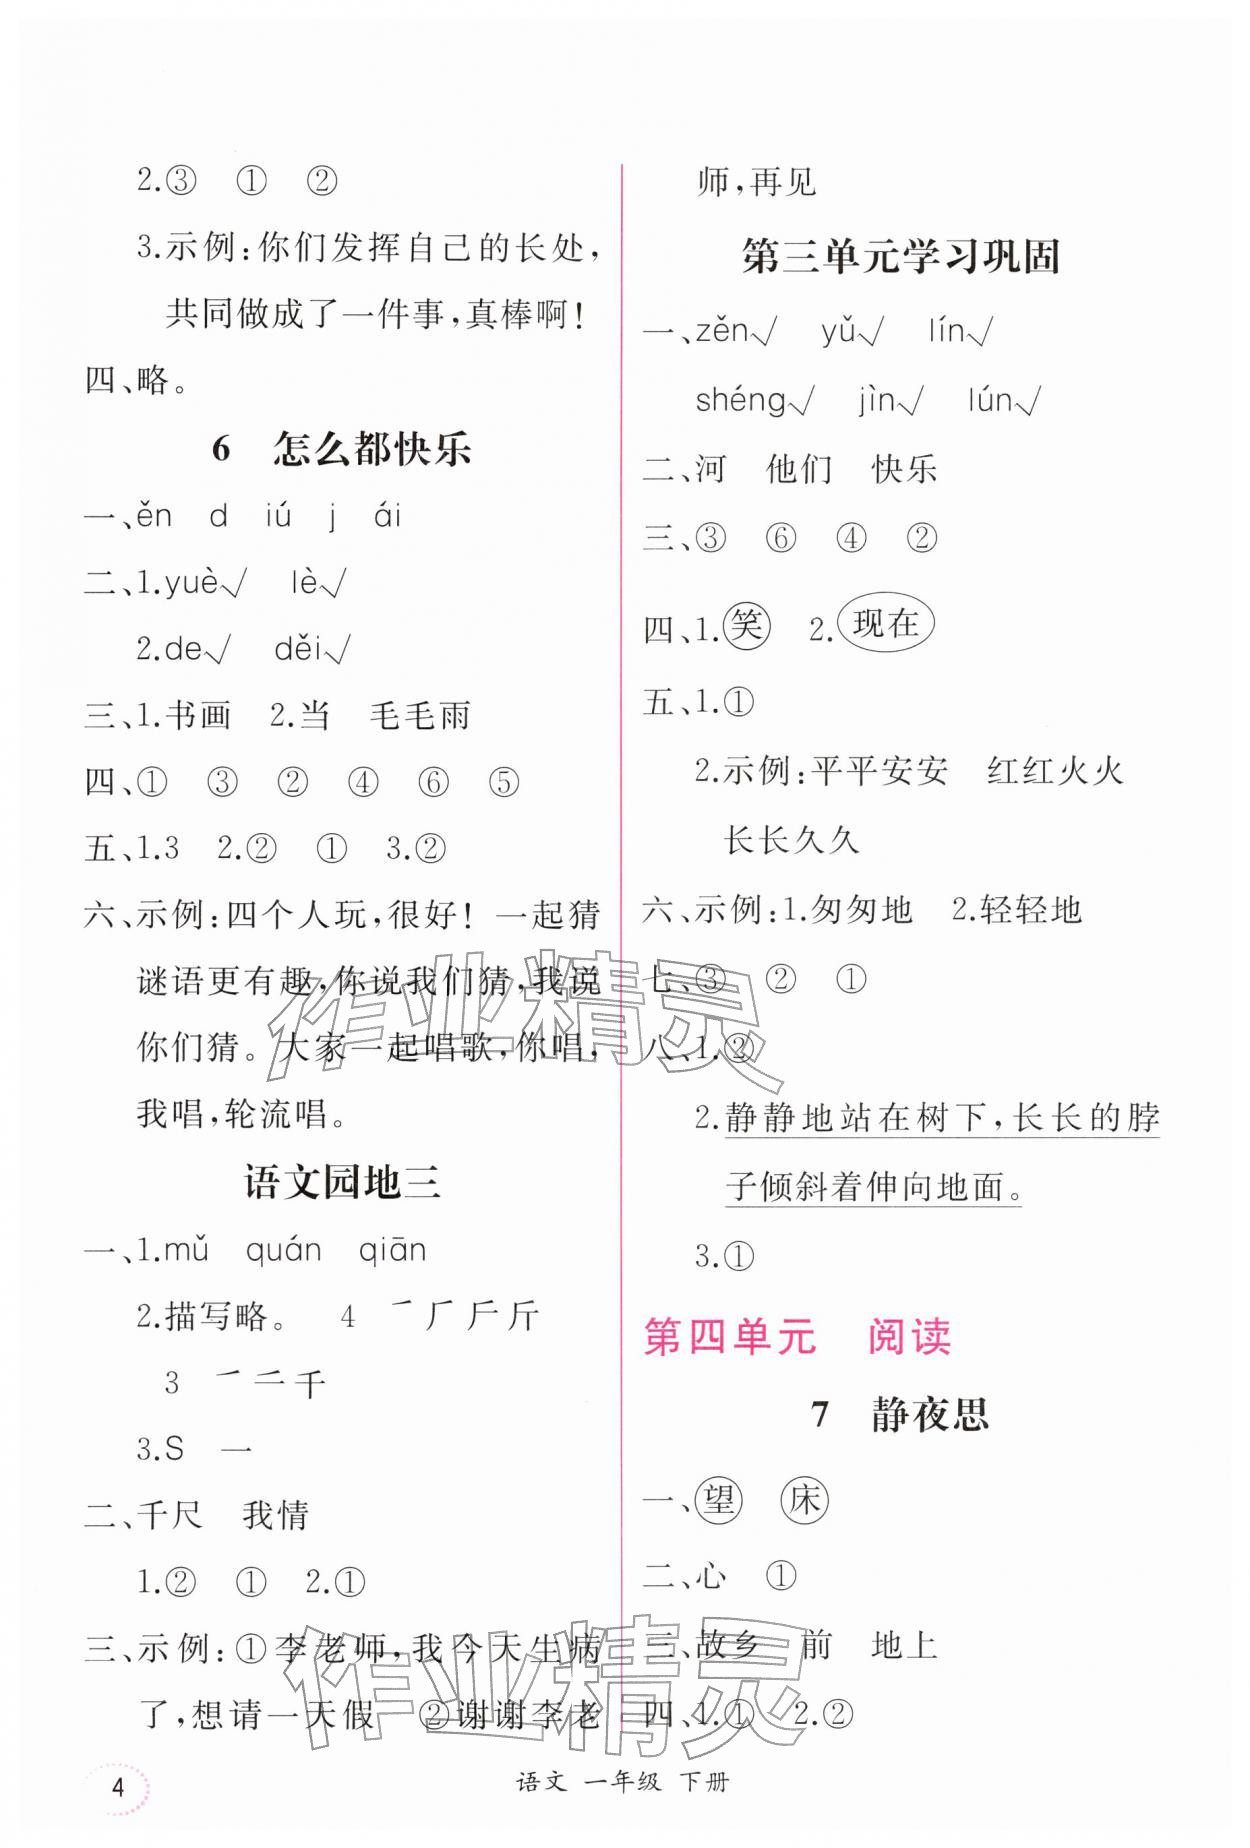 2.③ ① ②
3.示例:你们发挥自己的长处,
共同做成了一件事,真棒啊!
四、略。
6 怎么都快乐
一、ěn d iú j ái
二、1.yuè√ lè√
2.de√ děi√
三、1.书画 2.当 毛毛雨
四、① ③ ② ④ ⑥ ⑤
五、1.3 2.② ① 3.②
六、示例:四个人玩,很好! 一起猜
谜语更有趣,你说我们猜,我说
你们猜。大家一起唱歌,你唱,
我唱,轮流唱。
语文园地三
一、1.mǔ quán qiān
2.描写略。 4 ㇒ 厂 斤 斤
3 ㇒ 二 千
3.S 一
二、千尺 我情
1.② ① 2.①
三、示例:①李老师,我今天生病
了,想请一天假 ②谢谢李老
师,再见
第三单元学习巩固
一、zěn√ yǔ√ lín√
shéng√ jìn√ lún√
二、河 他们 快乐
三、③ ⑥ ④ ②
四、1.笑 2.现在
五、1.①
2.示例:平平安安 红红火火
长长久久
六、示例:1.匆匆地 2.轻轻地
七、③ ② ①
八、1.②
2.静静地站在树下,长长的脖
子倾斜着伸向地面。
3.①
第四单元 阅读
7 静夜思
一、望 床
二、心 ①
三、故乡 前 地上
四、1.① 2.②
作业精灵
作业精灵
4
语文 一年级 下册